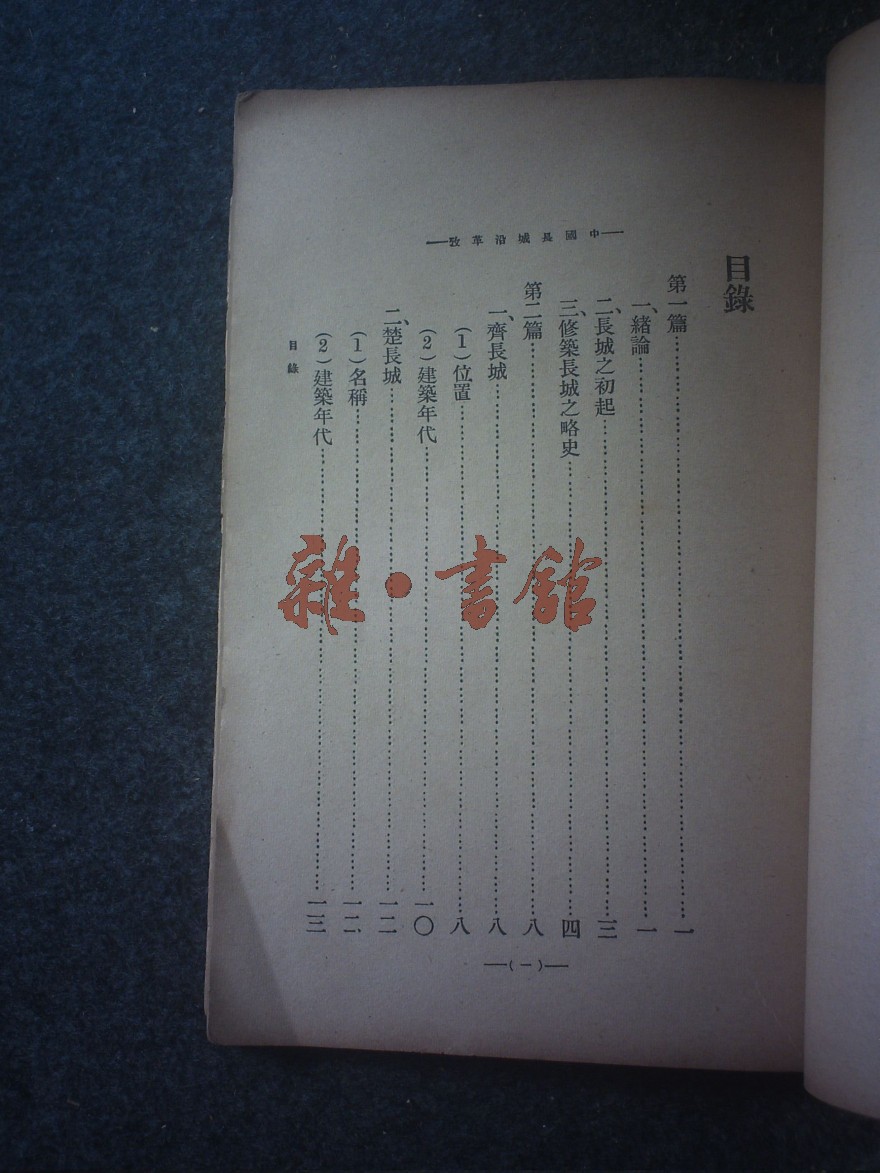 中國長城沿革攷
目錄
第一篇……一
一、緒論……一
二、長城之初起……三
三、修築長城之略史……四
第二篇……八
一、齊長城……八
(1)位置……八
(2)建築年代……一〇
二、楚長城……一二
(1)名稱……一二
(2)建築年代……一三
目錄
(一)
雜·書館